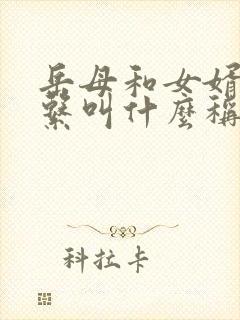 岳母和女婿
繫叫什麼稱
科拉卡